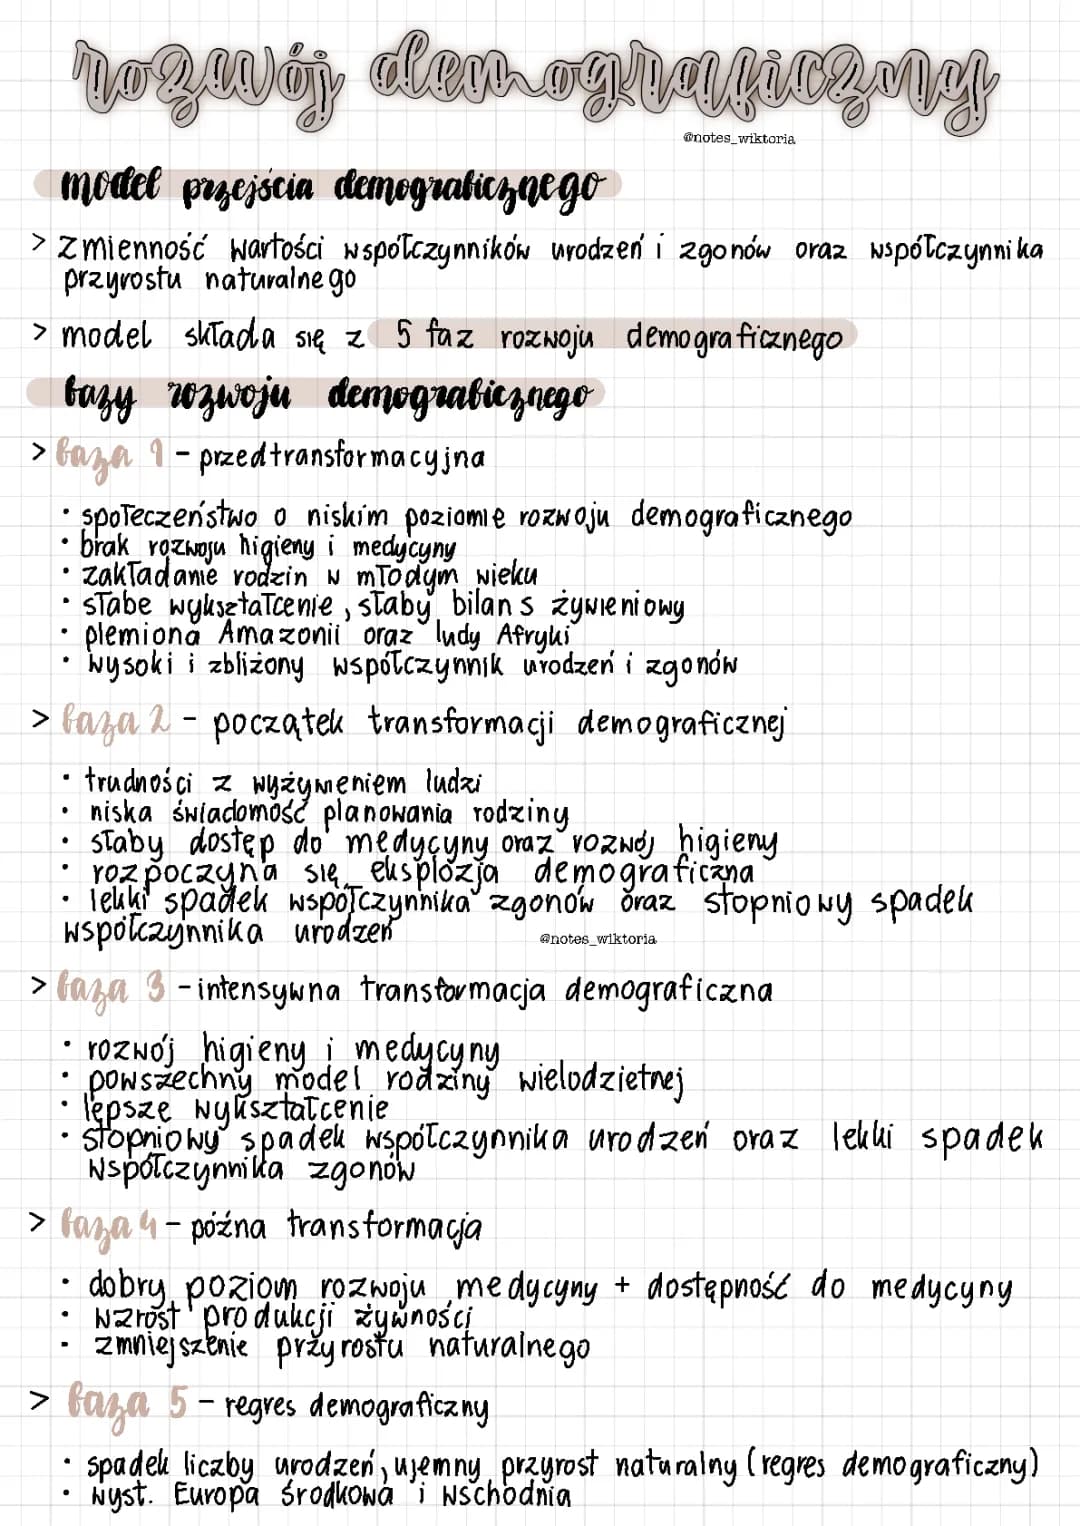 rozwój demograficzny
@notes_wiktoria
model przejścia demograficznego
> zmienność wartości współczynników urodzeń i zgonów oraz współczynnika
przyrostu naturalnego
> model składa się z 5 faz rozwoju demograficznego
fazy rozwoju demograficznego
> faza 1 - przedtransformacyjna
• społeczeństwo o niskim poziomie rozwoju demograficznego
• brak rozwoju higieny i medycyny
• zakładanie rodzin w młodym wieku
• słabe wykształcenie, słaby bilans żywieniowy
• plemiona Amazonii oraz ludy Afryki
• wysoki i zbliżony współczynnik urodzeń i zgonów
> faza 2 - początek transformacji demograficznej
• trudności z wyżywieniem ludzi
• niska świadomość planowania rodziny
• słaby dostęp do medycyny oraz rozwój higieny
• rozpoczyna się eksplozja demograficzna
• lekki spadek współczynnika zgonów oraz stopniowy spadek
współczynnika urodzeń
@notes_wiktoria
> faza 3 - intensywna transformacja demograficzna
• rozwój higieny i medycyny
• powszechny model rodziny wielodzietnej
• lepsze wykształcenie
• stopniowy spadek współczynnika urodzeń oraz lekki spadek
współczynnika zgonów
> faza 4 - późna transformacja
• dobry poziom rozwoju medycyny + dostępność do medycyny
• wzrost produkcji żywności
• zmniejszenie przyrostu naturalnego
> faza 5 - regres demograficzny
• spadek liczby urodzeń, ujemny przyrost naturalny (regres demograficzny)
• wyst. Europa Środkowa i Wschodnia